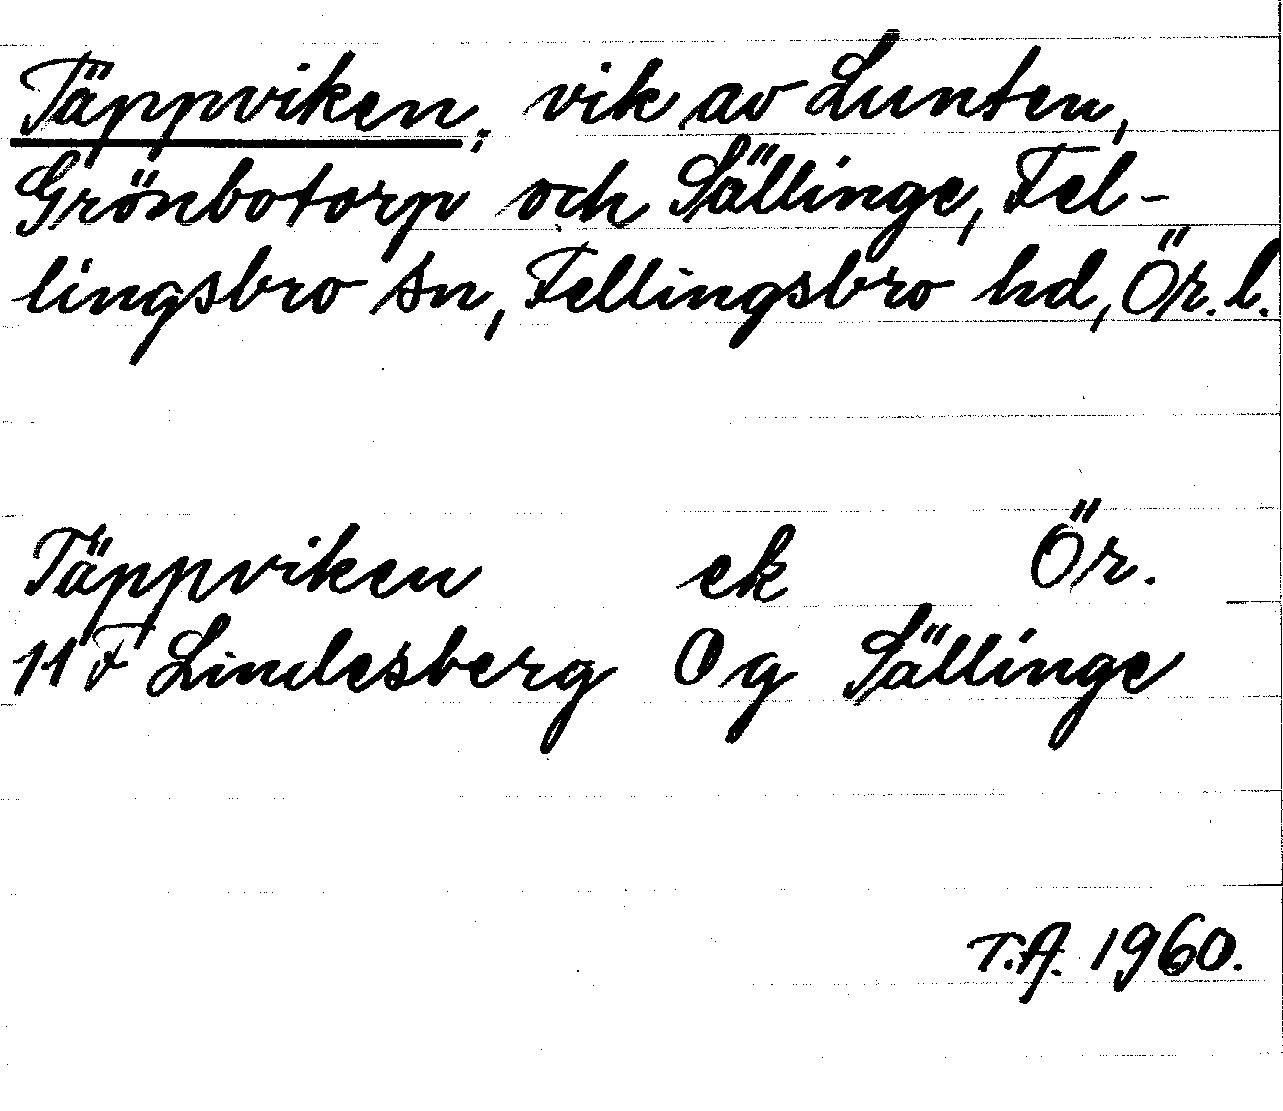 Täppviken; vik av Lunten,
Grönbotorp och Sällinge, Fel-
lingsbro sn, Fellingsbro hd, Ör. l.
Täppviken ek Ör.
11 F Lindesberg O g Sällinge
T.A. 1960.